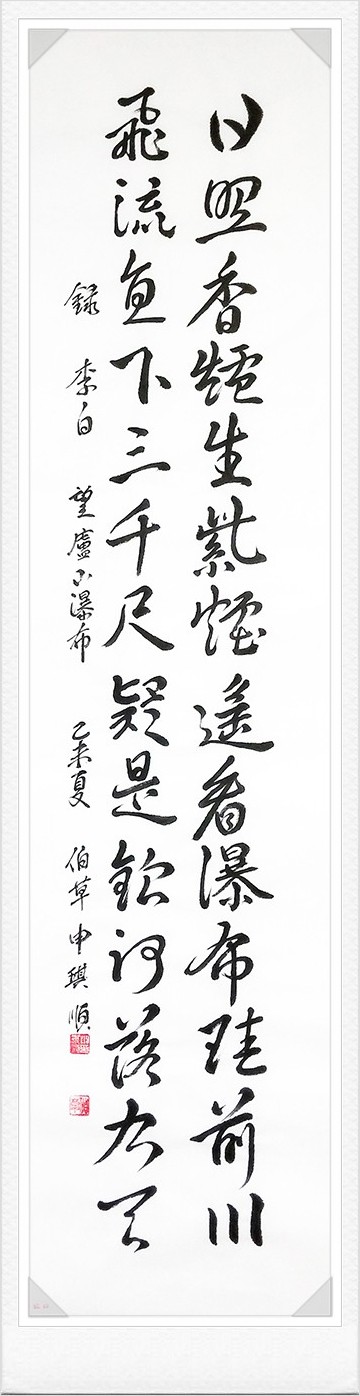 日照香爐生紫煙遙看瀑布挂前川
飛流直下三千尺疑是銀河落九天
録 李白 望廬山瀑布 乙未夏 伯草 申琪順